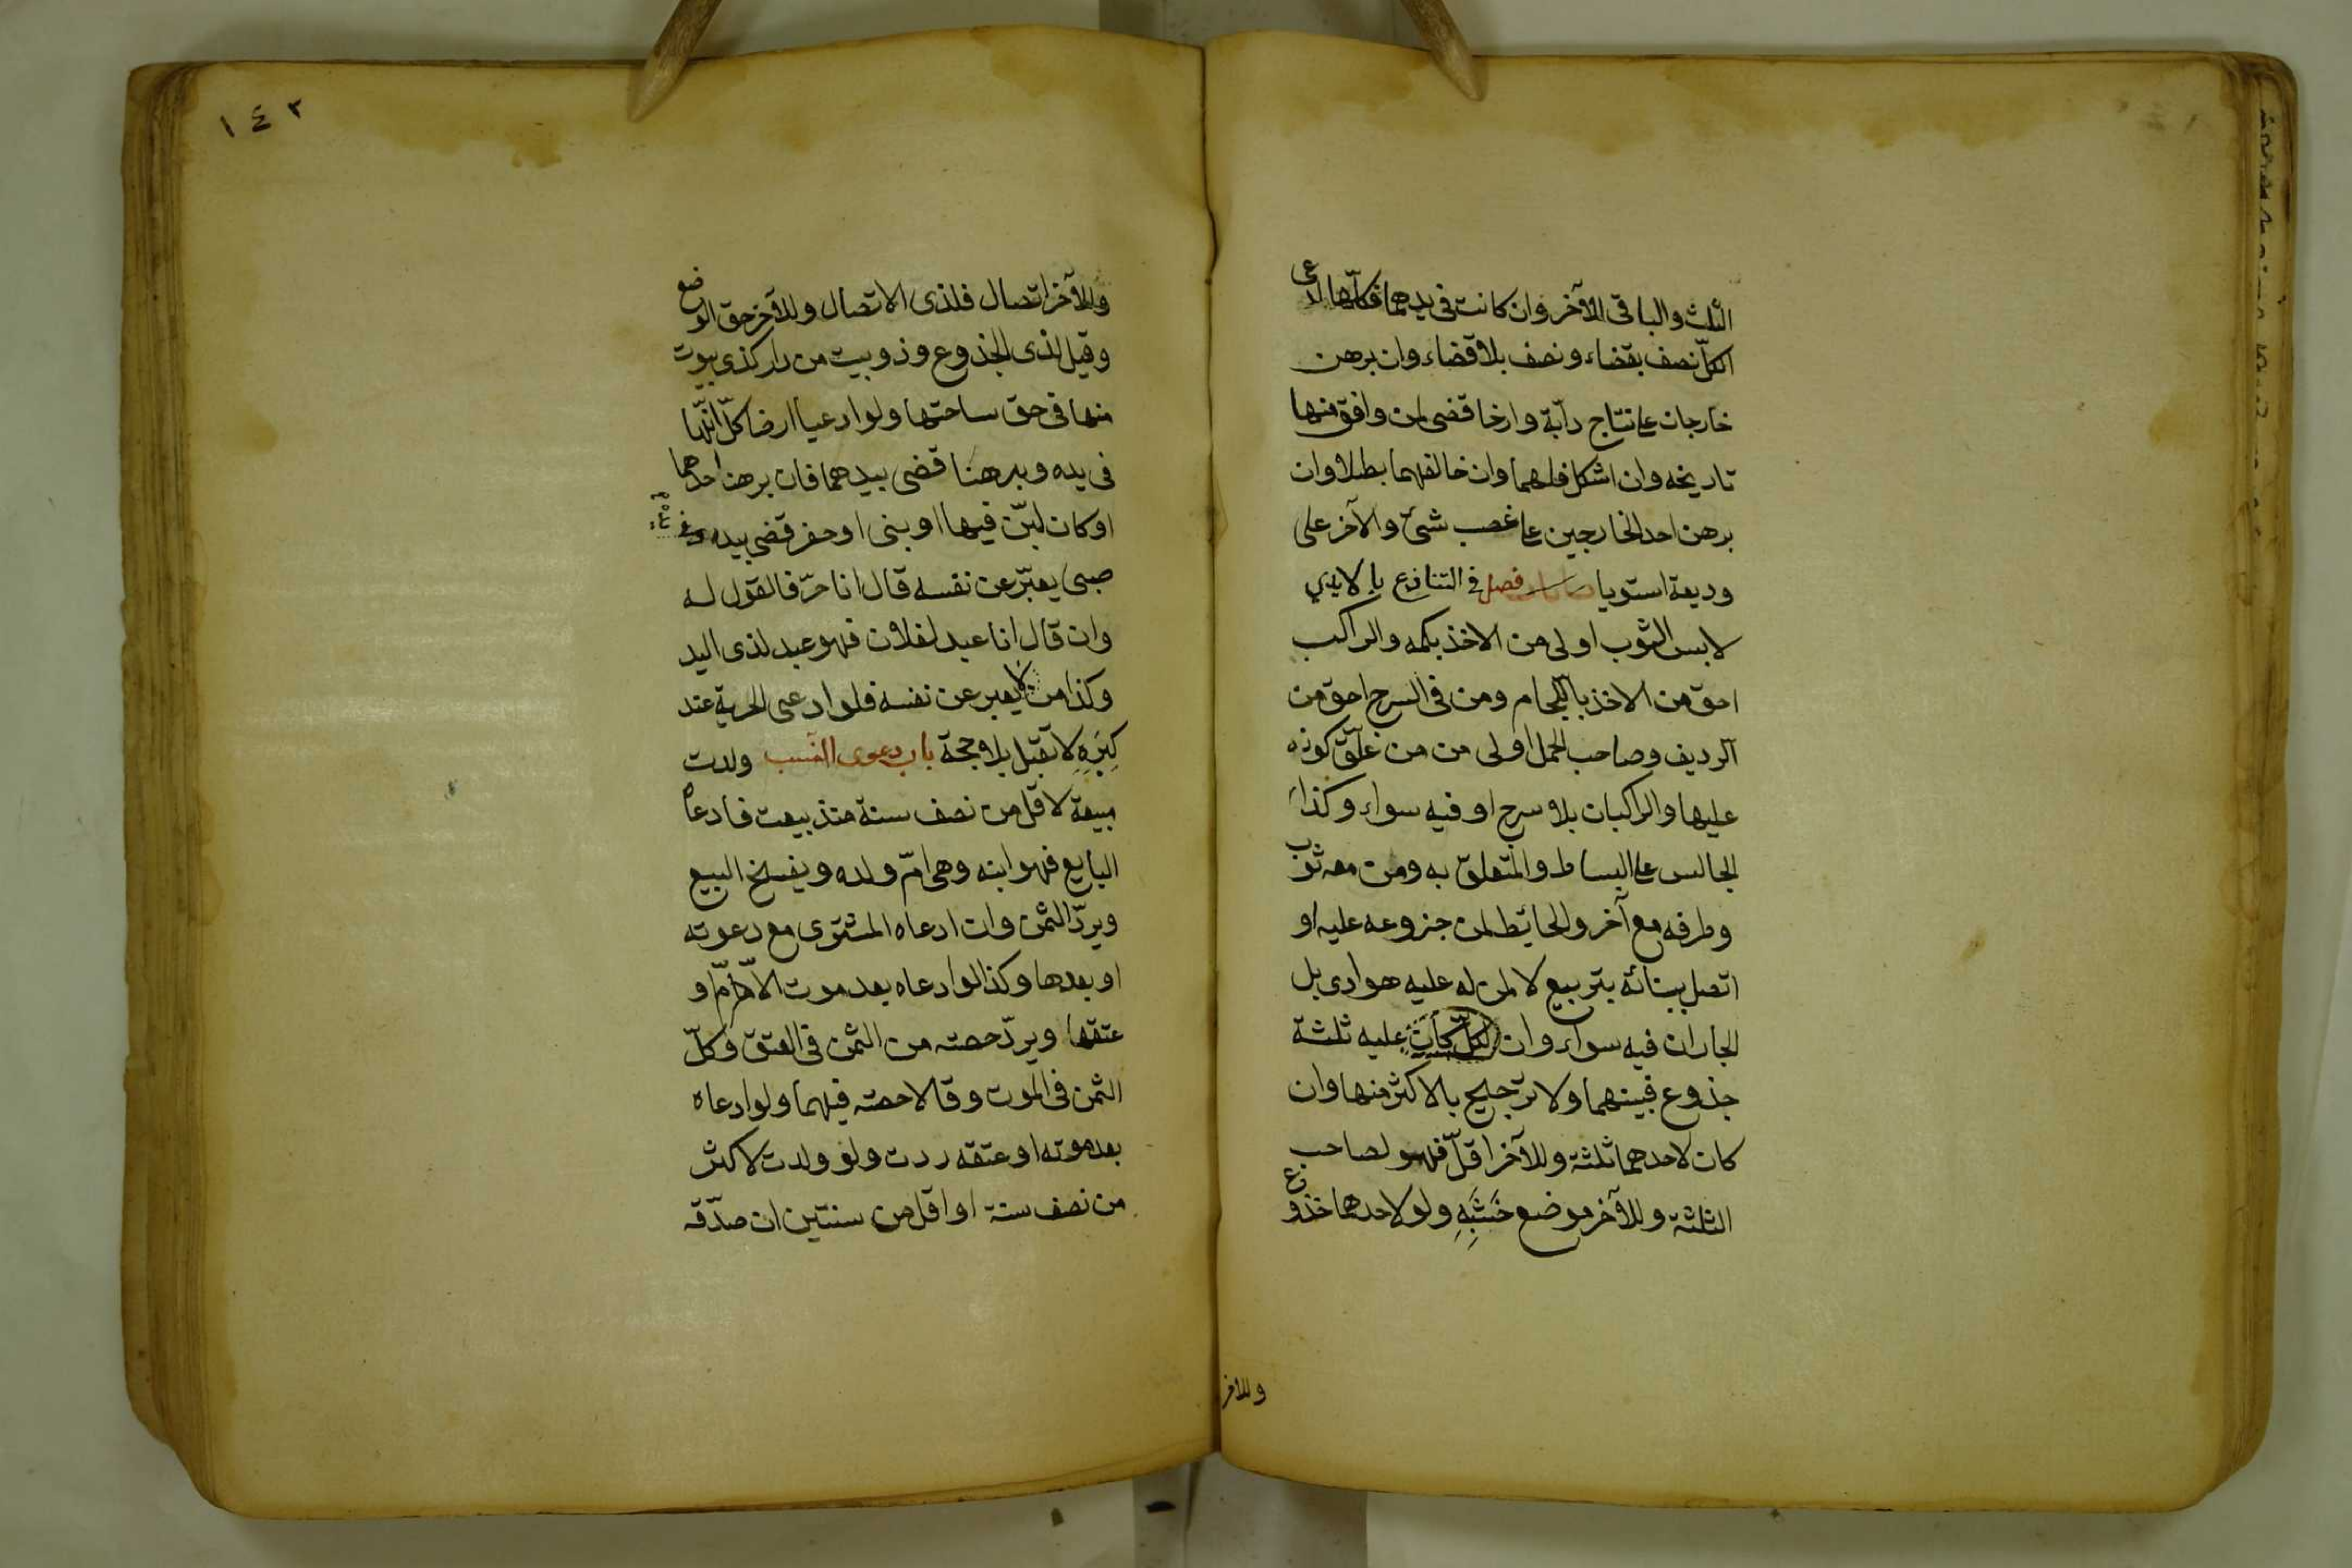 الثلث والباقى للآخر وان كانت فى يدهما فكلّها لمدعى
الكلّ نصف بقضاء ونصف بلا قضاء وان برهن
خارجان على نتاج دآبّة وارخا قضى لمن وافق منها
تاريخه وان اشكل فلهما وان خالفهما بطلا وان
برهن احد الخارجين على غصب شئ والآخر على
وديعة استويا فصل فى التنازع بالايدي
لابس الثوب اولى من الاخذ بكمه والراكب
احق من الاخذ باللجام ومن فى السرج احق من
الرديف وصاحب الحمل اولى من من علّق كوزه
عليها والراكبان بلا سرج او فيه سواء وكذا
الجالس على البساط والمتعلق به ومن معه ثوب
وطرفه مع آخر والحائط لمن جزوعه عليه او
اتصل ببنائه بتربيع لا لمن له عليه هوادى بل
الجاران فيه سواء وان لكلّ كان عليه ثلثة
جذوع فبينهما ولا ترجيح بالاكثر منها وان
كان لاحدهما ثلثة وللآخر اقلّ فهو لصاحب
الثلثة وللآخر موضع خَشَبِهِ ولو لاحدهما خذوع
وللاخر
١٤٢
وللآخر اتصال فلذى الاتصال وللآخر حق الوضع
وقيل لذى الجذوع وذو بيت من دار كذى بيوت
منها فى حق ساحتها ولو ادعيا ارضا كلّ انّها
فى يده وبرهنا قضى بيدهما فان برهن احدهما
او كان لبّن فيها او بنى او حفر قضى بيده
صبى يعبّر عن نفسه قال انا حرّ فالقول له
وان قال انا عبد لفلان فهو عبد لذى اليد
وكذا من لا يعبر عن نفسه فلو ادعى الحرية عند
كِبَرِهِ لا تقبل بلا حجة باب دعوى النسب ولدت
مبيعة لاقل من نصف سنة منذ بيعت فادعاه
البايع فهو ابنه وهى امّ ولده ويفسخ البيع
ويردّ الثمن وان ادعاه المشترى مع دعوته
او بعدها وكذا لو ادعاه بعد موت الامّ او
عتقها ويردّ حصته من الثمن فى العتق وكلّ
الثمن فى الموت وقالا حصته فيهما ولو ادعاه
بعد موته او عتقه ردت ولو ولدت لاكثر
من نصف سنة او اقل من سنتين ان صدّقه